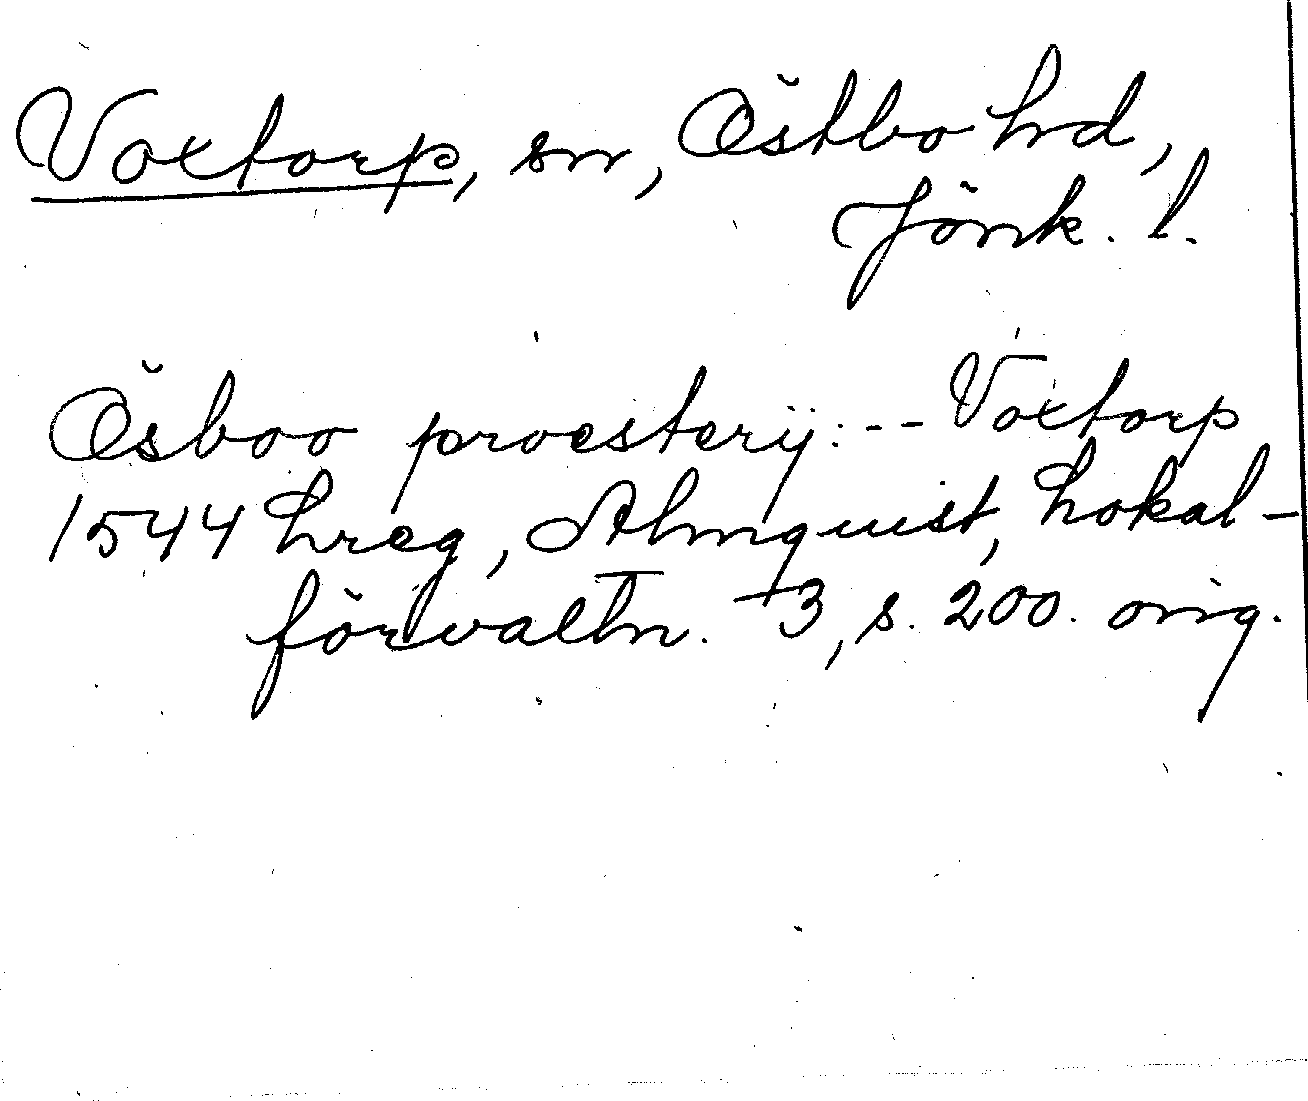 Voxtorp, sn, Östbo hd,
Jönk. l.
Ösboo proestery: --- Voxtorp
1544 hreg, Almquist, Lokal-
förvaltn. 3, s. 200. orig.